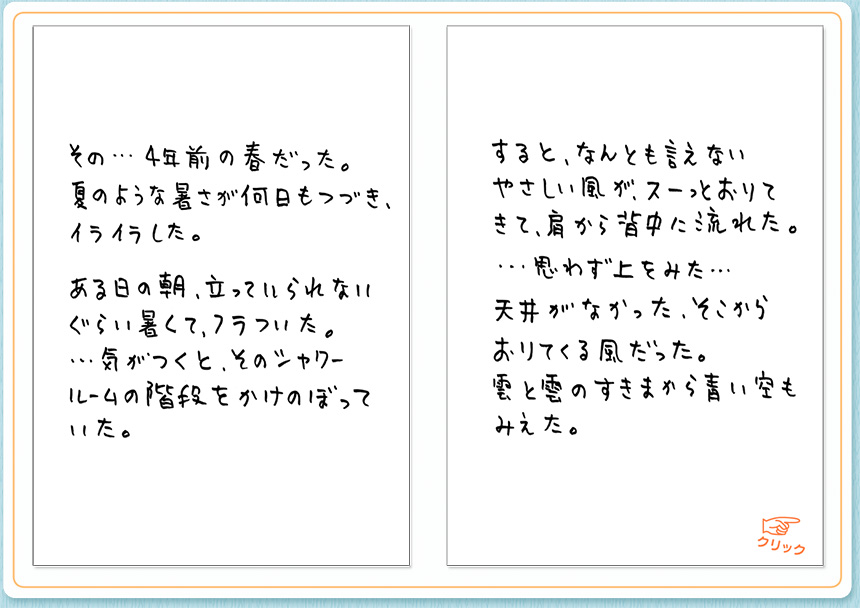 その…4年前の春だった。
夏のような暑さが何日もつづき、
イライラした。
ある日の朝、立っていられない
ぐらい暑くて、フラついた。
…気がつくと、そのシャワー
ルームの階段をかけのぼって
いた。
すると、なんとも言えない
やさしい風が、スーっとおりて
きて、肩から背中に流れた。
…思わず上をみた…
天井がなかった、そこから
おりてくる風だった。
雲と雲のすきまから青い空も
みえた。
クリック